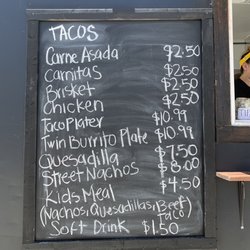 TACOS
Carne Asada $2.50
Carnitas $2.50
Brisket $2.50
Chicken $2.50
Taco Plater $10.99
Twin Burrito Plate $10.99
Quesadilla $7.50
Street Nachos $8.00
Kids Meal $4.50
(Nachos, Quesadillas, Beef Taco)
Soft Drink $1.50